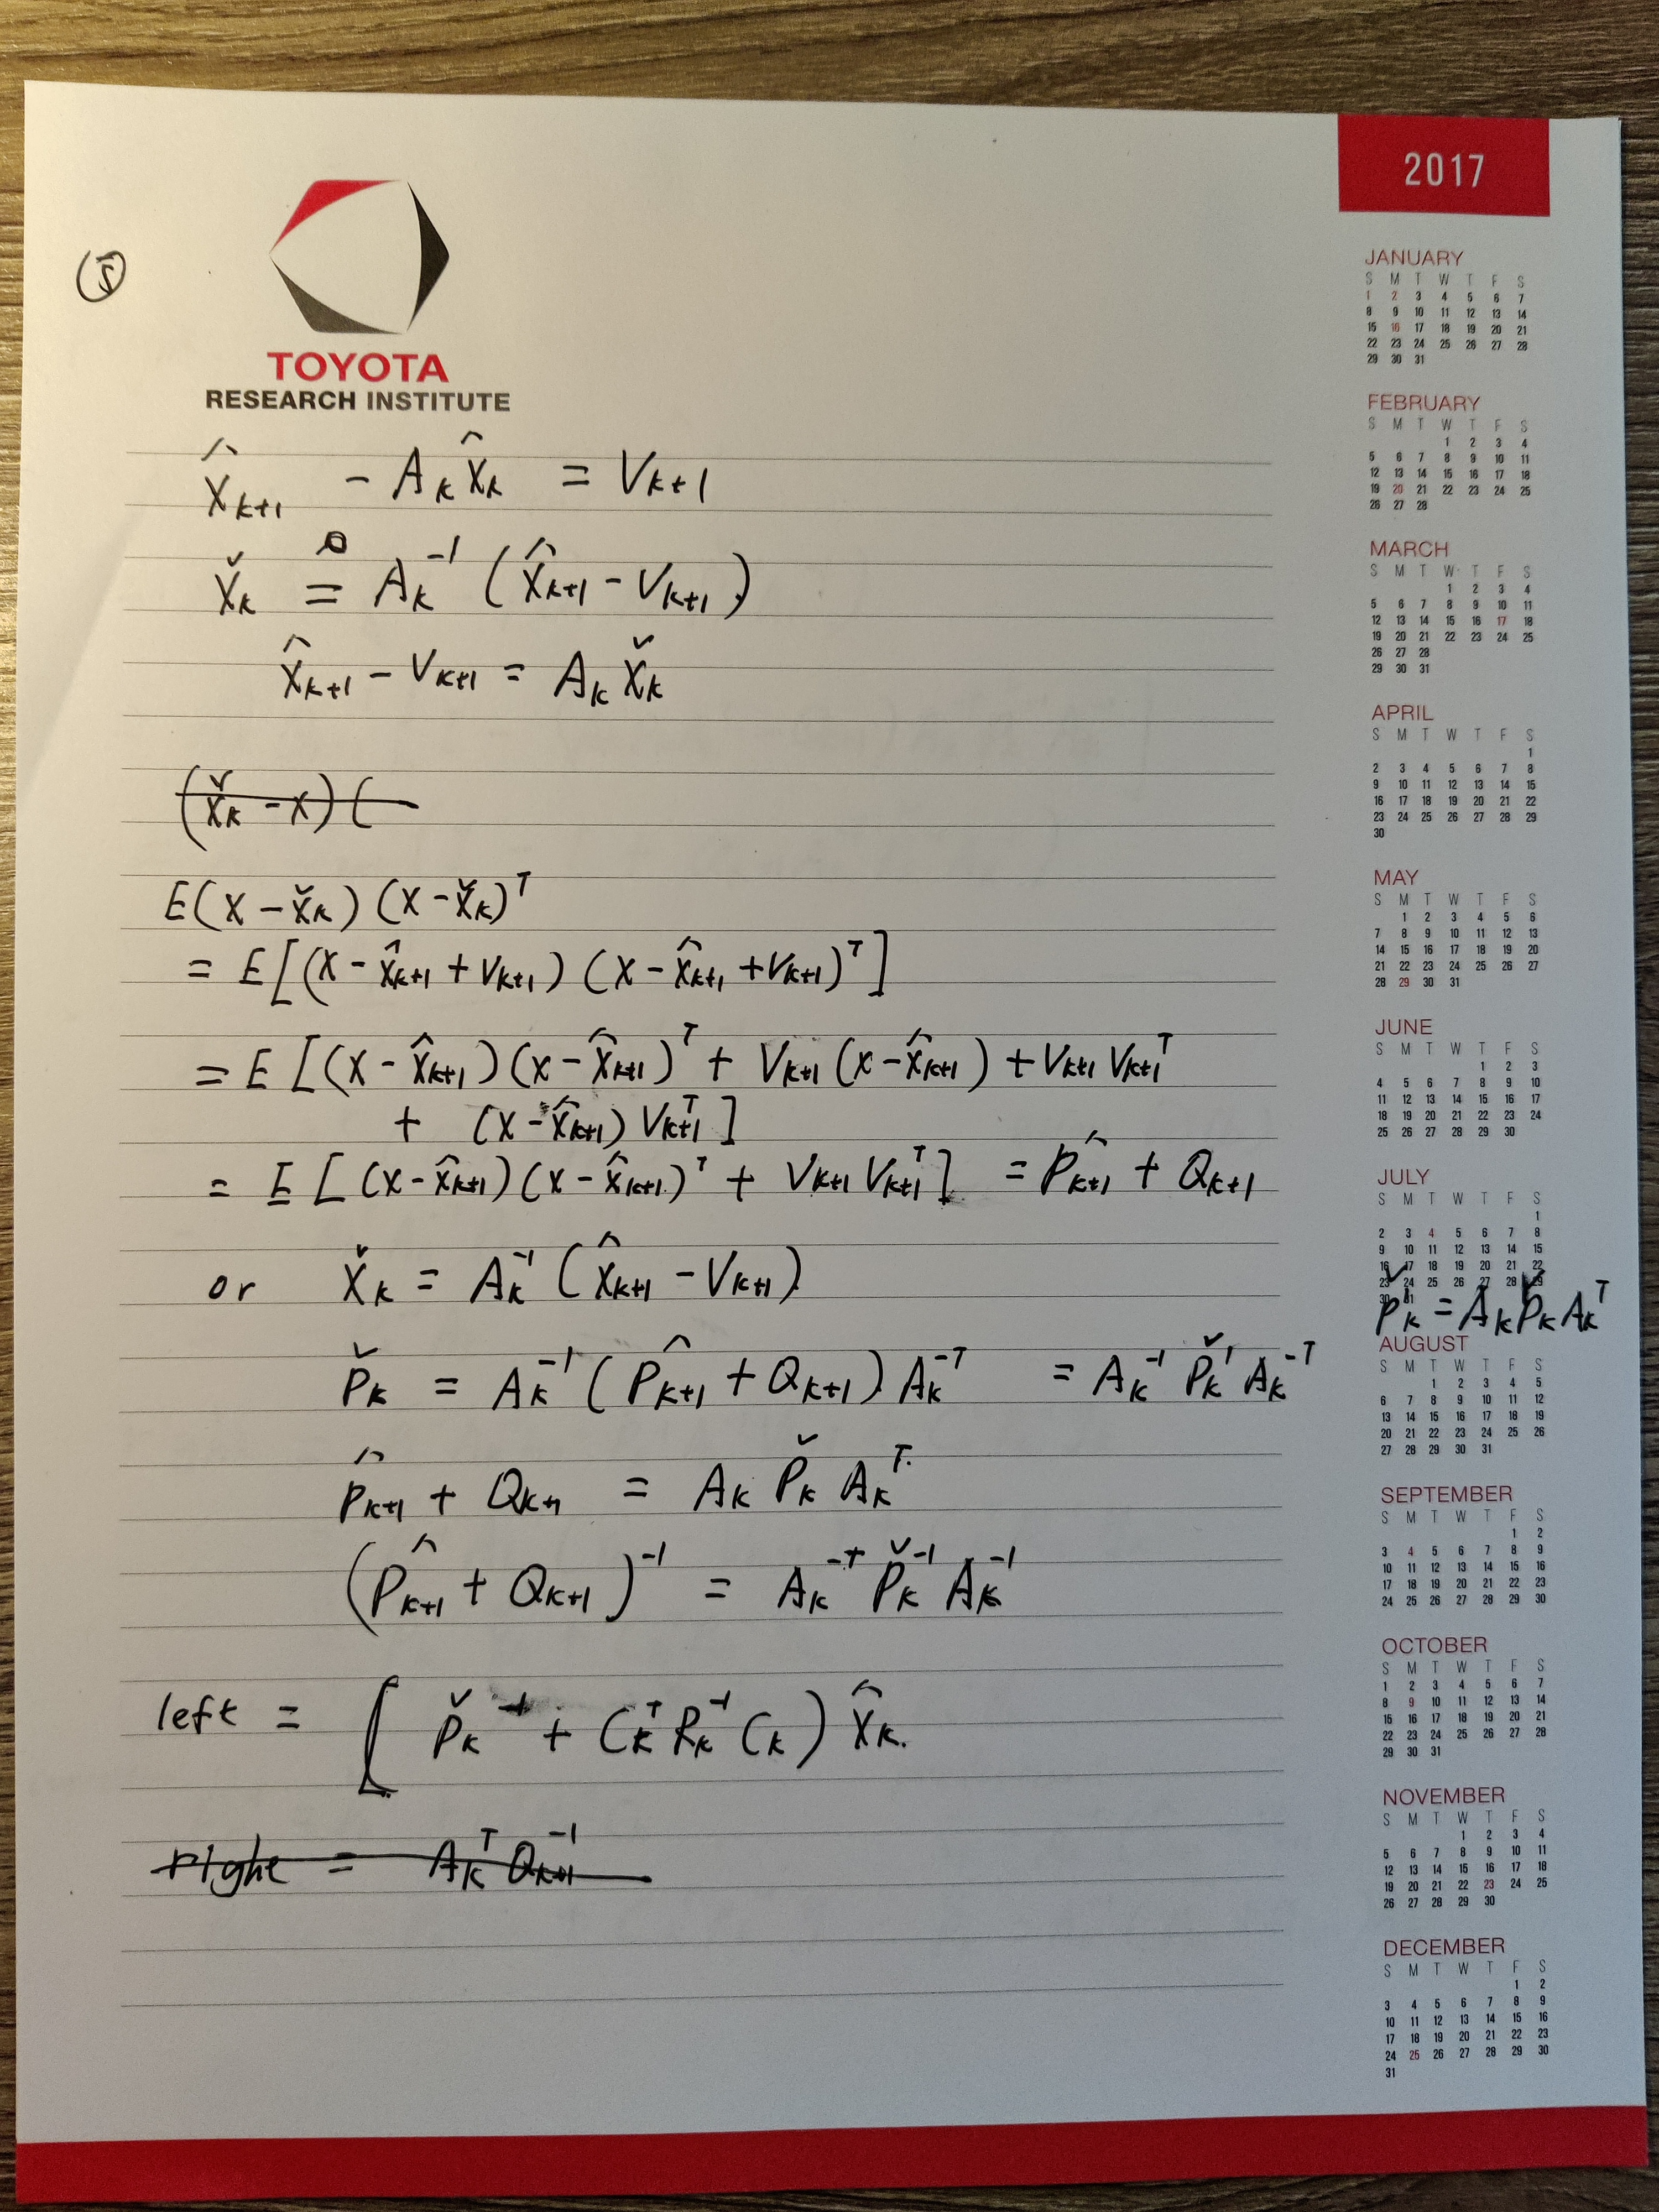 ⑤
TOYOTA
RESEARCH INSTITUTE
x̂ₖ₊₁ - Aₖ x̂ₖ = Vₖ₊₁
x̌ₖ = Aₖ⁻¹ (x̂ₖ₊₁ - Vₖ₊₁)
x̂ₖ₊₁ - Vₖ₊₁ = Aₖ x̌ₖ
(x̌ₖ - x) (
E(x - x̌ₖ) (x - x̌ₖ)ᵀ
= E[(x - x̂ₖ₊₁ + Vₖ₊₁) (x - x̂ₖ₊₁ + Vₖ₊₁)ᵀ]
= E [(x - x̂ₖ₊₁)(x - x̂ₖ₊₁)ᵀ + Vₖ₊₁ (x - x̂ₖ₊₁) + Vₖ₊₁ Vₖ₊₁ᵀ
+ (x - x̂ₖ₊₁) Vₖ₊₁ᵀ]
= E [(x - x̂ₖ₊₁)(x - x̂ₖ₊₁)ᵀ + Vₖ₊₁ Vₖ₊₁ᵀ] = P̂ₖ₊₁ + Qₖ₊₁
or x̌ₖ = Aₖ⁻¹ (x̂ₖ₊₁ - Vₖ₊₁)
P̌ₖ' = Aₖ P̌ₖ Aₖᵀ
P̌ₖ = Aₖ⁻¹ (P̂ₖ₊₁ + Qₖ₊₁) Aₖ⁻ᵀ = Aₖ⁻¹ P̌ₖ' Aₖ⁻ᵀ
P̂ₖ₊₁ + Qₖ₊₁ = Aₖ P̌ₖ Aₖᵀ
(P̂ₖ₊₁ + Qₖ₊₁)⁻¹ = Aₖ⁻ᵀ P̌ₖ⁻¹ Aₖ⁻¹
left = [ P̌ₖ⁻¹ + Cₖᵀ Rₖ⁻¹ Cₖ) x̂ₖ.
right = Aₖᵀ Qₖ₊₁⁻¹
2017
JANUARY
S M T W T F S
1 2 3 4 5 6 7
8 9 10 11 12 13 14
15 16 17 18 19 20 21
22 23 24 25 26 27 28
29 30 31
FEBRUARY
S M T W T F S
1 2 3 4
5 6 7 8 9 10 11
12 13 14 15 16 17 18
19 20 21 22 23 24 25
26 27 28
MARCH
S M T W T F S
1 2 3 4
5 6 7 8 9 10 11
12 13 14 15 16 17 18
19 20 21 22 23 24 25
26 27 28
29 30 31
APRIL
S M T W T F S
1
2 3 4 5 6 7 8
9 10 11 12 13 14 15
16 17 18 19 20 21 22
23 24 25 26 27 28 29
30
MAY
S M T W T F S
1 2 3 4 5 6
7 8 9 10 11 12 13
14 15 16 17 18 19 20
21 22 23 24 25 26 27
28 29 30 31
JUNE
S M T W T F S
1 2 3
4 5 6 7 8 9 10
11 12 13 14 15 16 17
18 19 20 21 22 23 24
25 26 27 28 29 30
JULY
S M T W T F S
1
2 3 4 5 6 7 8
9 10 11 12 13 14 15
16 17 18 19 20 21 22
23 24 25 26 27 28 29
30 31
AUGUST
S M T W T F S
1 2 3 4 5
6 7 8 9 10 11 12
13 14 15 16 17 18 19
20 21 22 23 24 25 26
27 28 29 30 31
SEPTEMBER
S M T W T F S
1 2
3 4 5 6 7 8 9
10 11 12 13 14 15 16
17 18 19 20 21 22 23
24 25 26 27 28 29 30
OCTOBER
S M T W T F S
1 2 3 4 5 6 7
8 9 10 11 12 13 14
15 16 17 18 19 20 21
22 23 24 25 26 27 28
29 30 31
NOVEMBER
S M T W T F S
1 2 3 4
5 6 7 8 9 10 11
12 13 14 15 16 17 18
19 20 21 22 23 24 25
26 27 28 29 30
DECEMBER
S M T W T F S
1 2
3 4 5 6 7 8 9
10 11 12 13 14 15 16
17 18 19 20 21 22 23
24 25 26 27 28 29 30
31